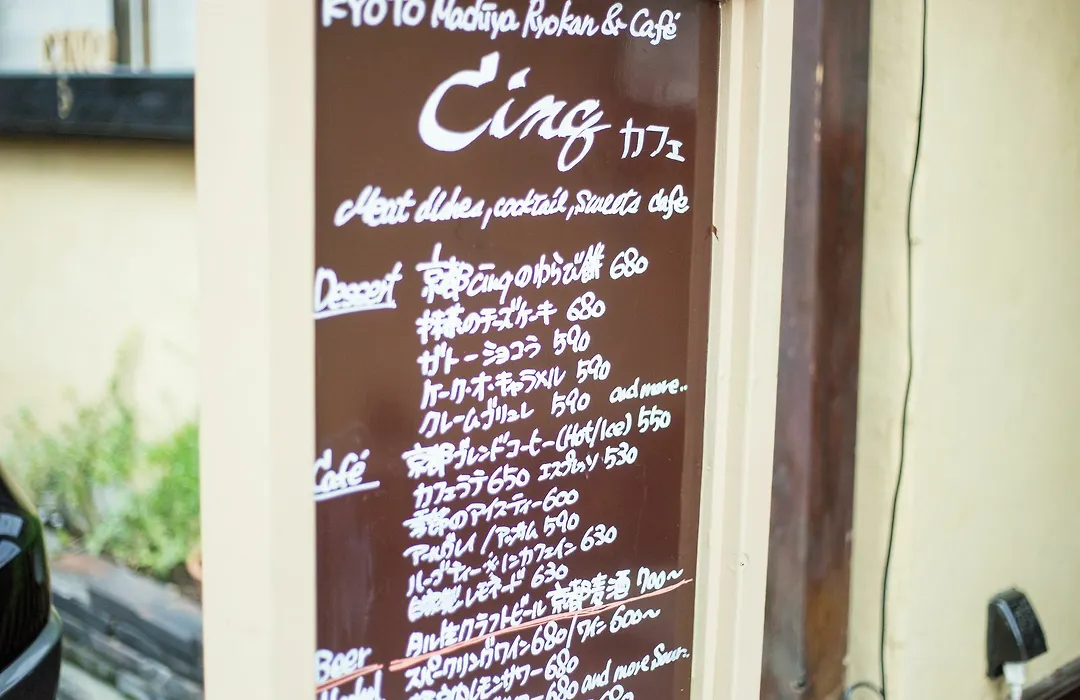 KYOTO Machiya Ryokan & Café
Cinq カフェ
Meat dishes, cocktail, sweets cafe
Dessert 京都cinqのわらび餅 680
抹茶のチーズケーキ 680
ガトーショコラ 590
ケーク・オ・キャラメル 590
クレームブリュレ 590 and more..
Café 京都ブレンドコーヒー(Hot/Ice) 550
カフェラテ 650 エスプレッソ 530
季節のアイスティー 600
アールグレイ/アッサム 590
ハーブティー※ノンカフェイン 630
自家製レモネード 630
Beer タル生クラフトビール 京都麦酒 700~
Alcohol スパークリングワイン 680/ワイン 600~
レモンサワー 680
サワー 680 and more Sour..